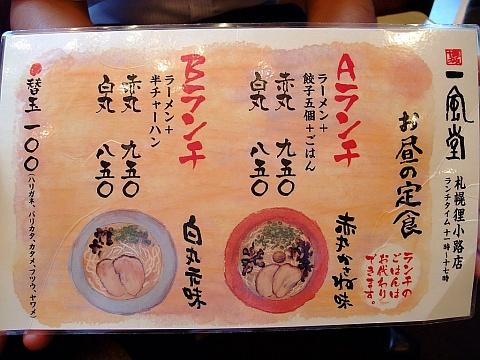 一風堂
札幌狸小路店
ランチタイム十一時～十七時
お昼の定食
ランチの
ごはんは
お代わり
できます。
Aランチ
ラーメン＋
餃子五個＋ごはん
赤丸 九五〇
白丸 八五〇
赤丸かさね味
Bランチ
ラーメン＋
半チャーハン
赤丸 九五〇
白丸 八五〇
白丸元味
替玉 一〇〇
(ハリガネ、バリカタ、カタメ、フツウ、ヤワメ)